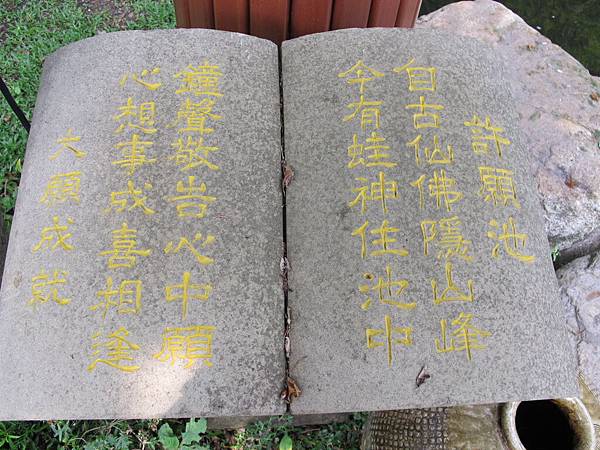 許願池
自古仙佛隱山峰
今有蛙神住池中
鐘聲敬告心中願
心想事成喜相逢
大願成就